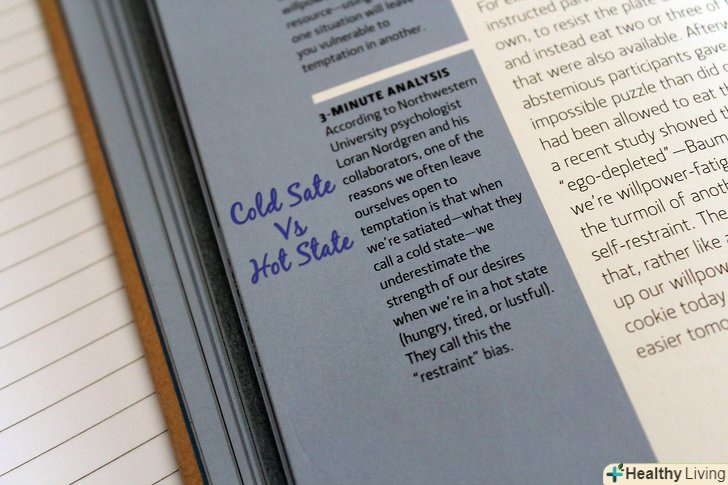 willpower
resource—using
one situation will leave
you vulnerable to
temptation in another.
3-MINUTE ANALYSIS
According to Northwestern
University psychologist
Loran Nordgren and his
collaborators, one of the
reasons we often leave
ourselves open to
temptation is that when
we're satiated—what they
call a cold state—we
underestimate the
strength of our desires
when we're in a hot state
(hungry, tired, or lustful).
They call this the
"restraint" bias.
Cold Sate
Vs
Hot State
For
instructed
own, to resist the plate
and instead eat two or three of
that were also available. After
abstemious participants gave
impossible puzzle than did
had been allowed to eat
a recent study showed
"ego-depleted"—
we're willpower-
the turmoil of
self-restraint.
that, rather like
up our
cookie today
easier
Healthy Living